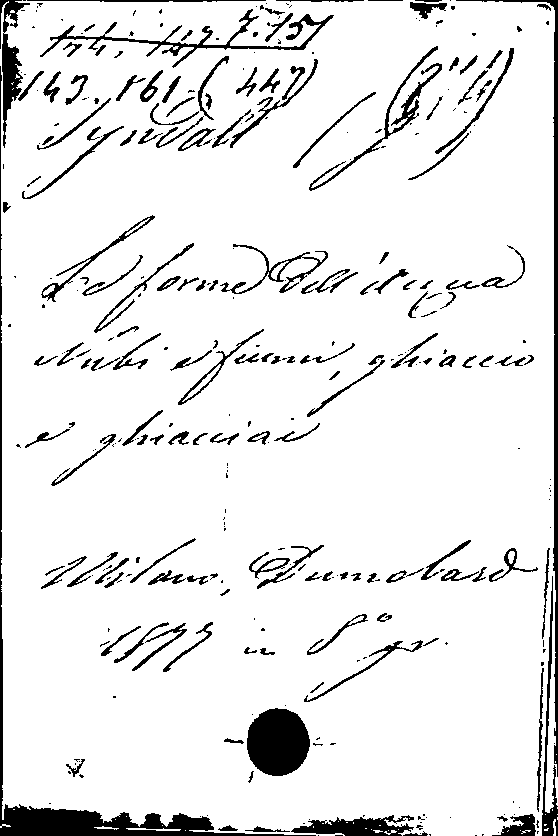 144; 147. 7. 151
143. 161 (447)
Tyndall (J.
Le forme dell'acqua
Nubi e fiumi, ghiaccio
e ghiacciai
Milano, Dumolard
1877 in 8° gr.